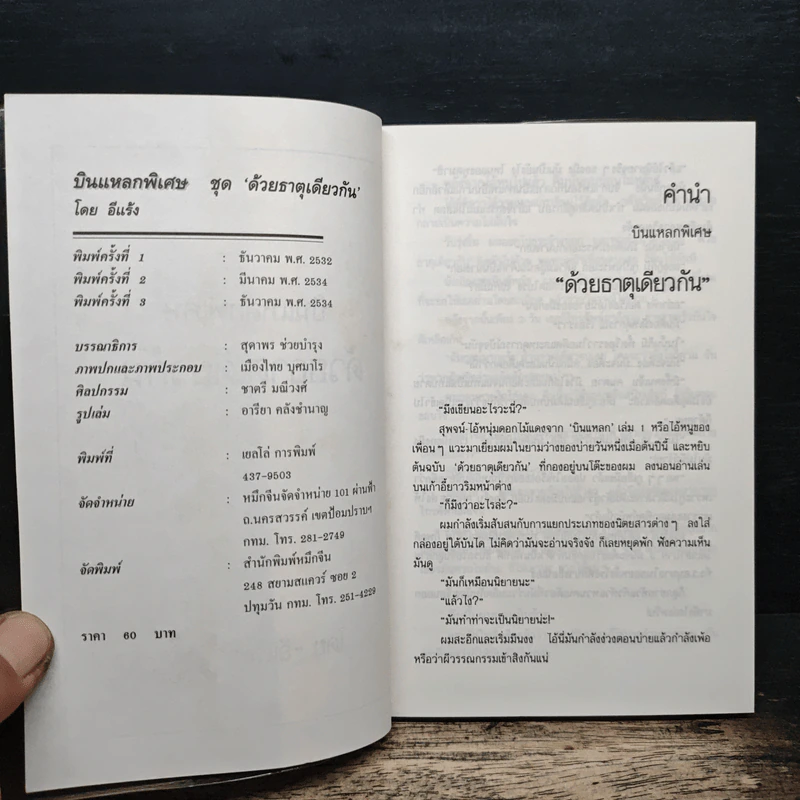 บินแหลกพิเศษ ชุด 'ด้วยธาตุเดียวกัน'
โดย อีแร้ง
พิมพ์ครั้งที่ 1 : ธันวาคม พ.ศ. 2532
พิมพ์ครั้งที่ 2 : มีนาคม พ.ศ. 2534
พิมพ์ครั้งที่ 3 : ธันวาคม พ.ศ. 2534
บรรณาธิการ : สุดาพร ช่วยบำรุง
ภาพปกและภาพประกอบ : เมืองไทย บุศมาโร
ศิลปกรรม : ชาตรี มณีวงศ์
รูปเล่ม : อารียา คลังชำนาญ
พิมพ์ที่ : เยลโล่ การพิมพ์
437-9503
จัดจำหน่าย : หมึกจีนจัดจำหน่าย 101 ผ่านฟ้า
ถ.นครสวรรค์ เขตป้อมปราบฯ
กทม. โทร. 281-2749
จัดพิมพ์ : สำนักพิมพ์หมึกจีน
248 สยามสแควร์ ซอย 2
ปทุมวัน กทม. โทร. 251-4229
ราคา 60 บาท
คำนำ
บินแหลกพิเศษ
"ด้วยธาตุเดียวกัน"
"มึงเขียนอะไรวะนี่?"
สุพจน์-ไอ้หนุ่มดอกไม้แดงจาก 'บินแหลก' เล่ม 1 หรือไอ้หนูของ
เพื่อนๆ แวะมาเยี่ยมผมในยามว่างของบ่ายวันหนึ่งเมื่อต้นปีนี้ และหยิบ
ต้นฉบับ 'ด้วยธาตุเดียวกัน' ที่กองอยู่บนโต๊ะของผม ลงนอนอ่านเล่น
บนเก้าอี้ยาวริมหน้าต่าง
"ก็มึงว่าอะไรล่ะ?"
ผมกำลังเริ่มสับสนกับการแยกประเภทของนิตยสารต่างๆ ลงใส่
กล่องอยู่ใต้บันได ไม่คิดว่ามันจะอ่านจริงจัง ก็เลยหยุดพัก ฟังความเห็น
มันดู
"มันก็เหมือนนิยายนะ"
"แล้วไง?"
"มันทำท่าจะเป็นนิยายน่ะ!"
ผมสะอึกและเริ่มมึนงง ไอ้นี่มันกำลังง่วงตอนบ่ายแล้วกำลังเพ้อ
หรือว่าผีวรรณกรรมเข้าสิงกันแน่